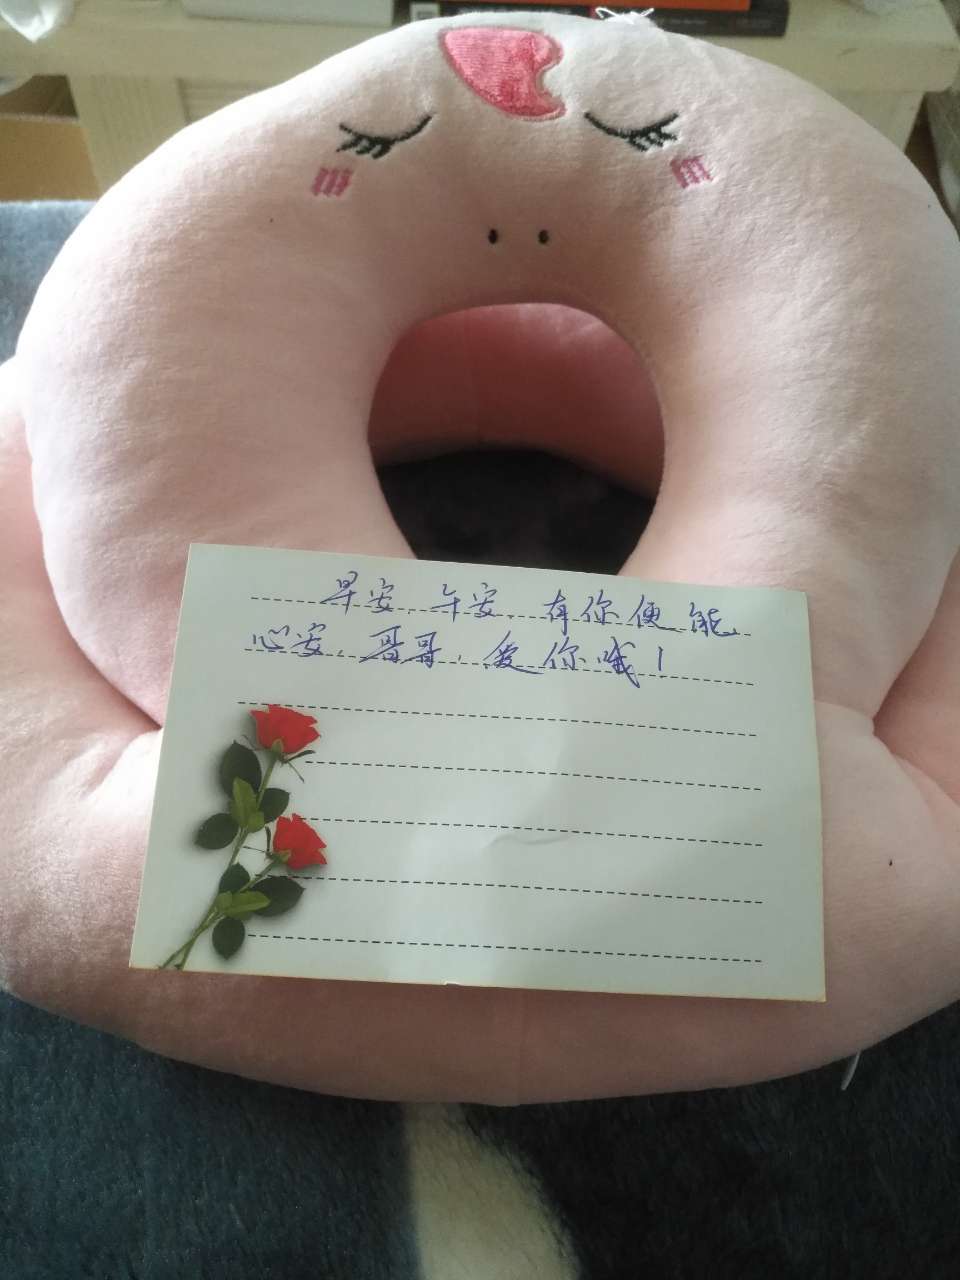 早安,午安,有你便能
心安,哥哥,爱你哦!